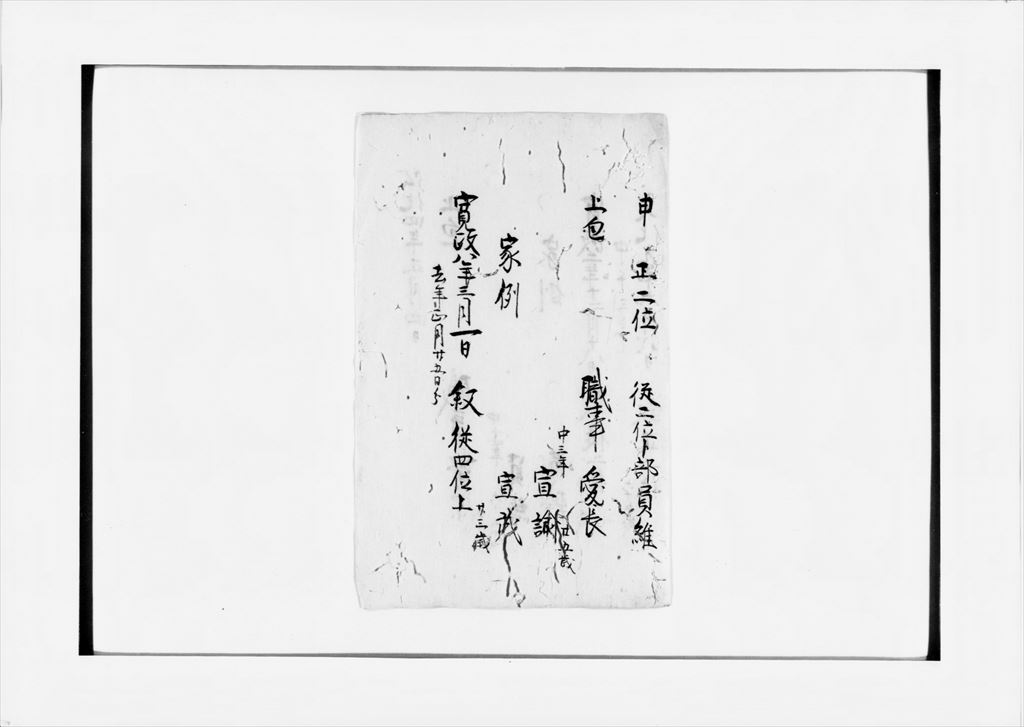 申 正二位 従二位卜部員維
上包 職事 愛長
中三年 宣諭 廿五歳
家例 宣武 廿三歳
寛政八年三月一日 叙従四位上
去年正月廿五日分